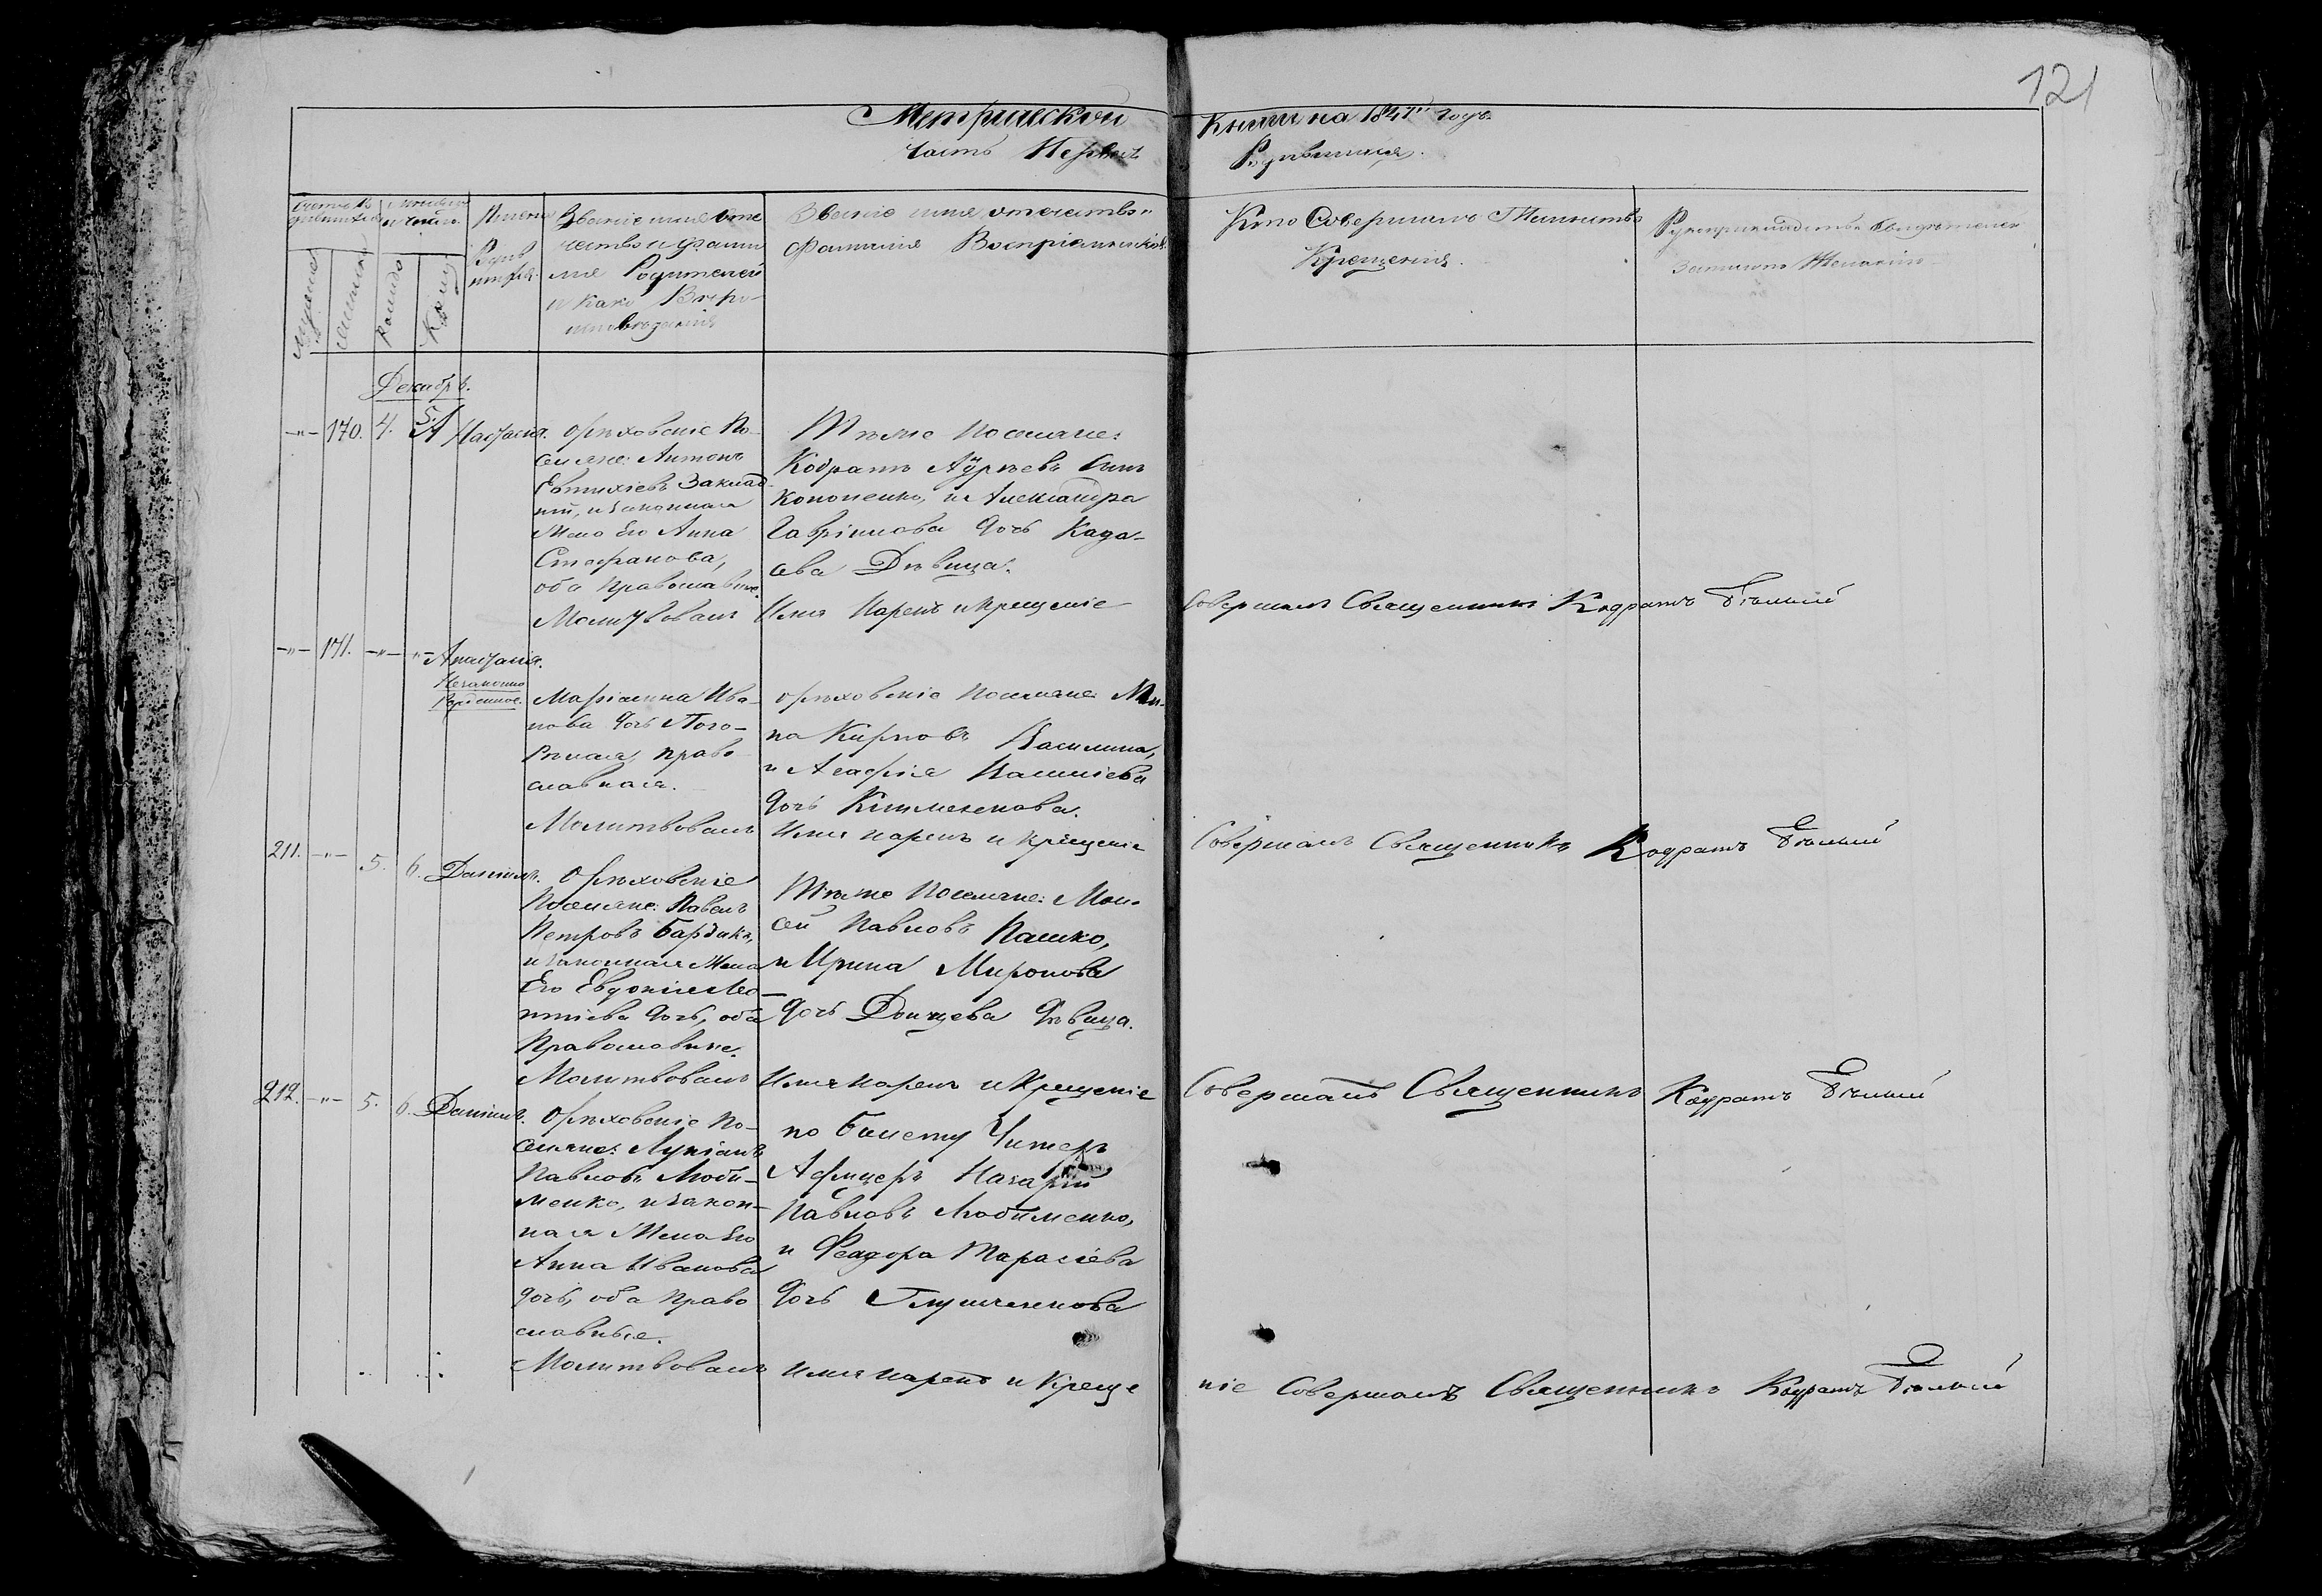 121
Метрической
Книги на 1847й годъ.
часть Первая
Родившихся.
Имена
Родив
шихся.
Званіе имя отче
чество и фами
лия Родителей
и како Вѣро-
исповеданія
Званіе имя отечество и
фамилія Воспріемниковъ.
Кто Совершалъ Таинство
Крещенія.
Рукоприкладство свидѣтелей
записи Желанію
мужеска
женска
рожде
Крещ
Декабрь.
—"— 170. 4. 5. Анастасія.
Орѣховскіе По-
селяне: Антонъ
Евтихіевъ
и законная
Жена Его Анна
Стефанова,
оба православные.
Тѣже Поселяне:
Кодратъ Сынъ
Кононенко, и Александра
Гаврілова дочь
Дѣвица.
Молитвовалъ Имя Нарекъ и крещеніе Совершалъ Священникъ Кодратъ Бѣлый
—"— 171. —"— "— Анастасія.
Незаконно
Рожденное.
Маріанна Ива-
нова дочь Пого-
рѣлая, право
славная.
Орѣховскіе Поселяне: Ми-
на Карповъ Василина,
и Агафія
дочь
Молитвовалъ Имя нарекъ и крещеніе Совершалъ Священникъ Кодратъ Бѣлый
211. —"— 5. 6. Даніилъ.
Орѣховскіе
Поселяне: Павелъ
Петровъ Бардикъ,
и законная Жена
Его Евдокія Лео-
нтіева дочь, оба
Православные.
Тѣже Поселяне: Мои-
сей Павловъ Пашко,
и Ирина Миронова
дочь Донцева Дѣвица.
Молитвовалъ Имя нарекъ и Крещеніе Совершалъ Священникъ Кодратъ Бѣлый
212. —"— 5. 6. Даніилъ.
Орѣховскіе По-
селяне: Лукіанъ
Павловъ Люби-
менко, и закон-
ная Жена Его
Анна Иванова
дочь, оба Право
славные.
по билету Унтеръ
Афицеръ Назарій
Павловъ Любименко,
и Феодора Тарасіева
дочь
Молитвовалъ имя нарекъ и Креще
ніе Совершалъ Священникъ Кодратъ Бѣлый